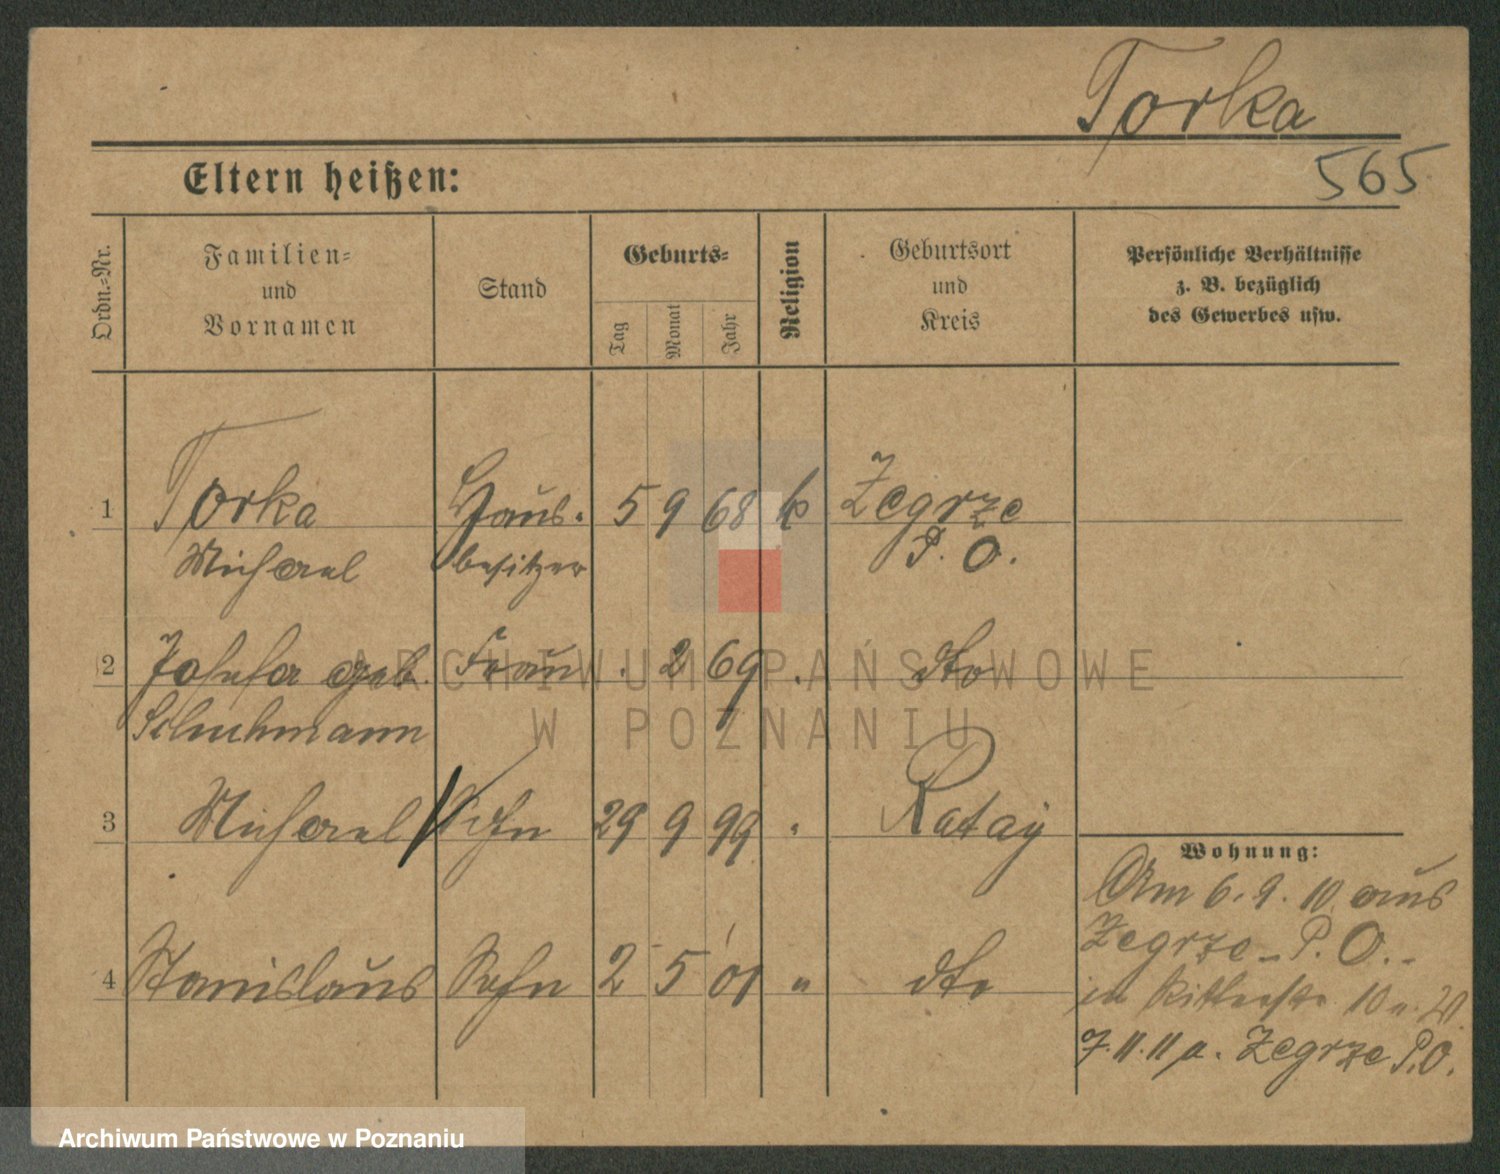 Torka
565
Eltern heißen:
Ordn.-Nr.
Familien-
und
Vornamen
Stand
Geburts-
Tag
Monat
Jahr
Religion
Geburtsort
und
Kreis
Persönliche Verhältnisse
z. B. bezüglich
des Gewerbes usw.
1 Torka Haus- 5 9 68 k Zegrze
Michael besitzer P. O.
2 Josefa geb. Frau . 2 69 . dto
Schuhmann
3 Michael Sohn 29 9 99 " Rataÿ
4 Stanislaus Sohn 2 5 01 " dto
Wohnung:
Am 6. 9. 10 aus
Zegrze - P. O. -
in Ritterstr. 10
7. 11. 11 n. Zegrze P. O.
ARCHIWUM PAŃSTWOWE
W POZNANIU
Archiwum Państwowe w Poznaniu